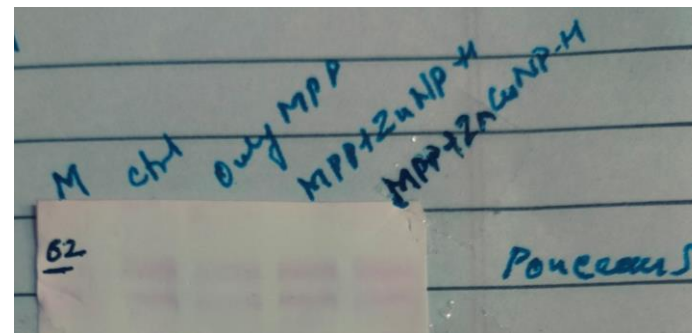 M ctrl Only MPP MPP+ZnNP-H MPP+ZnCuNP-H
62
Ponceau S